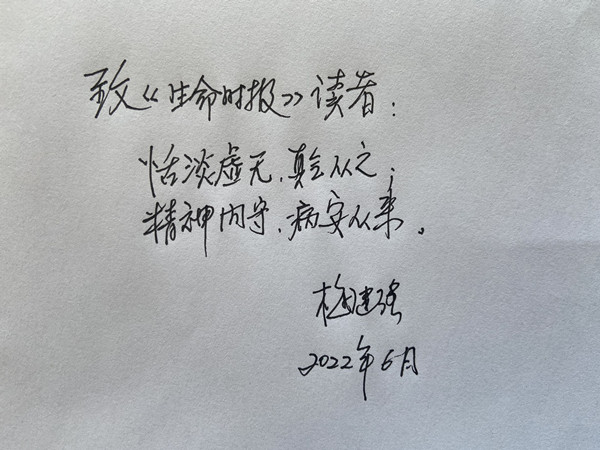 致《生命时报》读者：
恬淡虚无，真气从之；
精神内守，病安从来。
梅建强
2022年6月